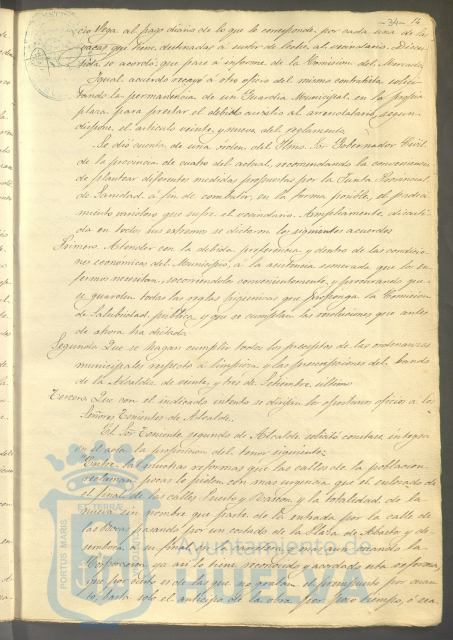 -34- 14
cio Vega al pago diario de lo que le corresponde, por cada una de las
vacas que tiene destinadas á surtir de leche al vecindario.
se acordó que pase á informe de la Comision del Mercado
Igual acuerdo recayó á otro oficio del mismo contratista
la permanencia de un Guardia Municipal en la
plaza para prestar el debido auxilio al arrendatario, segun
dispone el articulo veinte y nueve del reglamento
Se dió cuenta de una orden del Iltmo. Sor. Gobernador Civil
de la provincia de cuatro del actual, recomendando la conveniencia
de plantear diferentes medidas propuestas por la Junta Provincial
de Sanidad á fin de combatir, en la forma posible, el
miento varioloso que sufre el vecindario. Ampliamente, discuti-
da en todos sus extremos se dictaron los siguientes acuerdos
Primero. Atender con la debida preferencia y dentro de las condicio-
nes economicas del Municipio, á la asistencia esmerada que los en-
fermos necesitan, socorriendolos convenientemente, y procurando que
se guarden todas las reglas higienicas que proponga la Comision
de Salubridad publica y que se cumplan las resoluciones que antes
de ahora ha dictado
Segundo. Que se hagan cumplir todos los preceptos de las ordenanzas
municipales respecto á limpieza y las prevenciones del bando
de la Alcaldia de veinte y tres de Setiembre ultimo
Tercero. Que con el indicado intento se dirijan los oportunos oficios á los
Señores Tenientes de Alcalde.
El Sor. Teniente segundo de Alcalde solicitó constase integra
en el acta la proposicion del tenor siguiente:
"Entre las muchas reformas que las calles de la poblacion
reclaman pocas lo piden con mas urgencia que el
el final de las calles Puerto y Rascon y la totalidad de la
nueva sin nombre que parte de la entrada por la calle de
las Bocas pasando por un costado de la Plaza de Abastos y de-
semboca
Corporacion ya asi lo tiene reconocido y acordado esta reforma,
que por cierto es de las que no gravan el presupuesto por cuan-
to basta solo el anticipo de la obra por poco tiempo, ó sea
ET TERRÆ
PORTUS MARIS
Ayuntamiento de
HUELVA